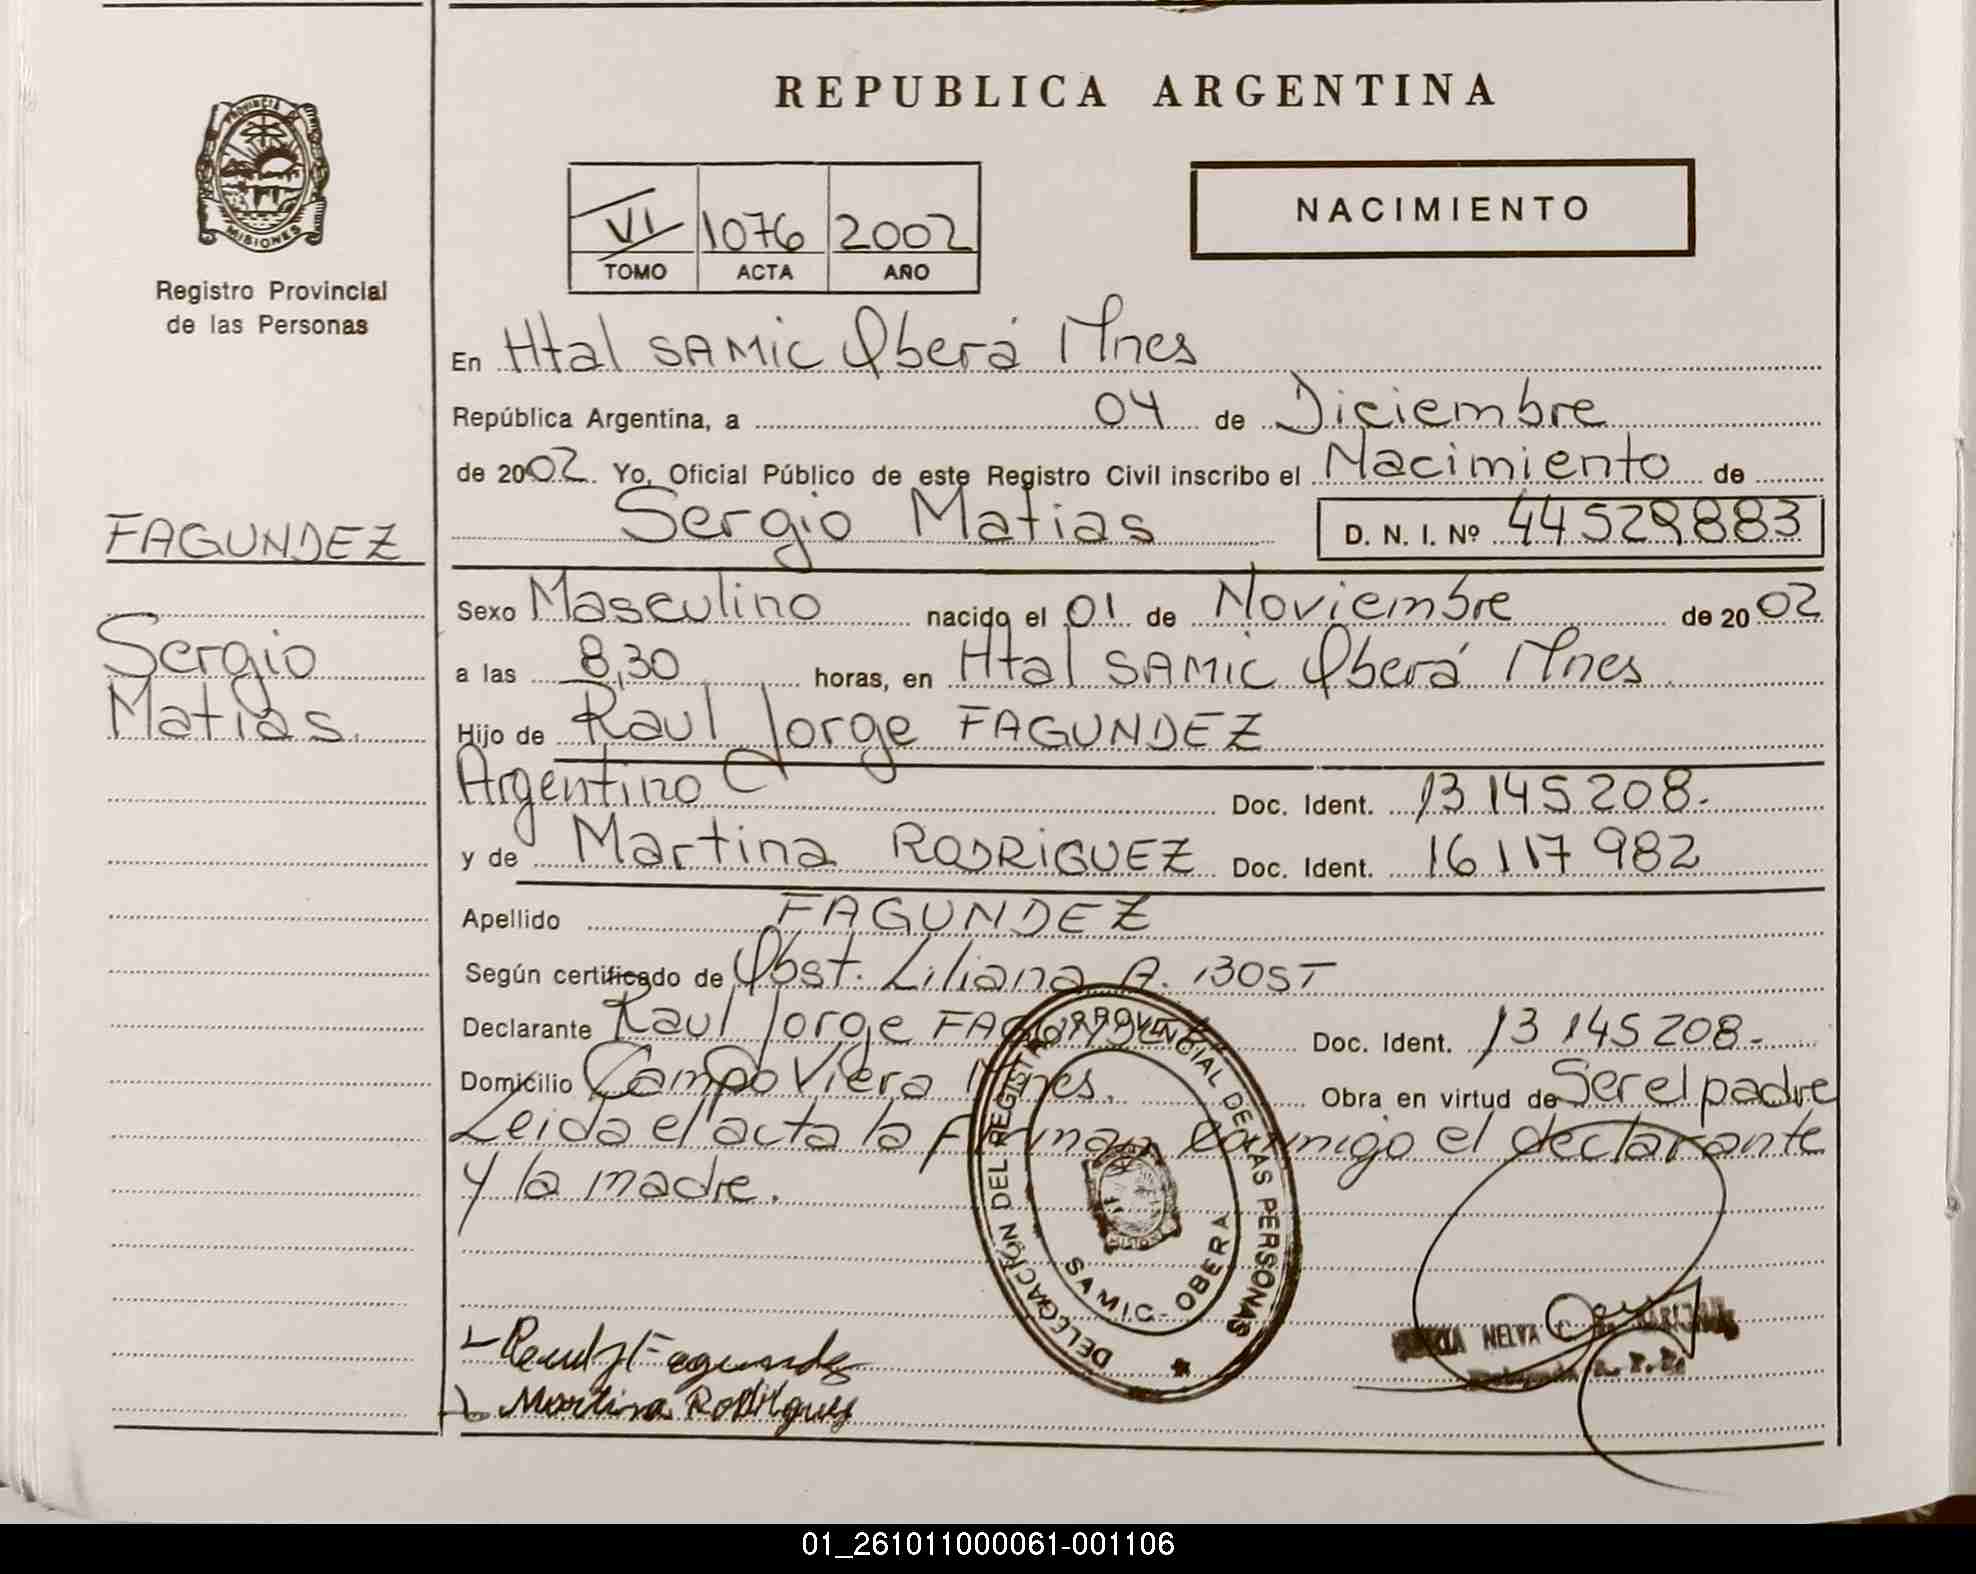 REPUBLICA ARGENTINA
PROVINCIA DE
MISIONES
Registro Provincial
de las Personas
VI 1076 2002
TOMO ACTA AÑO
NACIMIENTO
En Htal SAMIC Oberá Mnes
República Argentina, a 04 de Diciembre
de 2002. Yo, Oficial Público de este Registro Civil inscribo el Nacimiento de
Sergio Matias D. N. I. Nº 44529883
FAGUNDEZ
Sergio
Matias.
Sexo Masculino nacido el 01 de Noviembre de 2002
a las 8,30 horas, en Htal SAMIC Oberá Mnes
Hijo de Raul Jorge FAGUNDEZ
Argentino Doc. Ident. 13 145 208.
y de Martina RODRIGUEZ Doc. Ident. 16 117 982
Apellido FAGUNDEZ
Según certificado de Obst. Liliana A. BOST
Declarante Raul Jorge FAGUNDEZ Doc. Ident. 13 145 208.
Domicilio Campo Viera Mnes. Obra en virtud de Ser el padre
Leida el acta la firman conmigo el declarante
y la madre.
DELEGACIÓN DEL REGISTRO PROVINCIAL DE LAS PERSONAS
SAMIC - OBERA
Raul J Fagundez
Martina Rodriguez
NELVA
01_261011000061-001106